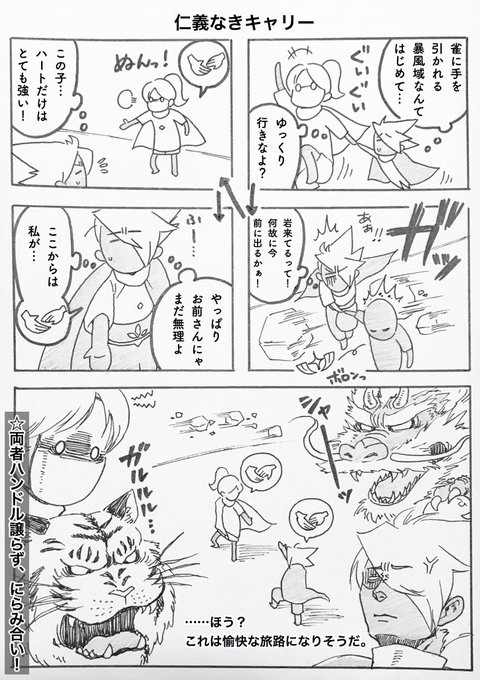 仁義なきキャリー
雀に手を
引かれる
暴風域なんて
はじめて…
ぐいぐい
ゆっくり
行きなよ？
ぬんっ！
この子…
ハートだけは
とても強い！
ガッ
あぁ!!
岩来てるって！
何故に今
前に出るかぁ！
ボロンっ
ふー……
やっぱり
お前さんにゃ
まだ無理よ
ここからは
私が…
シャー
ガルルル…
……ほう？
これは愉快な旅路になりそうだ。
☆両者ハンドル譲らず、にらみ合い！